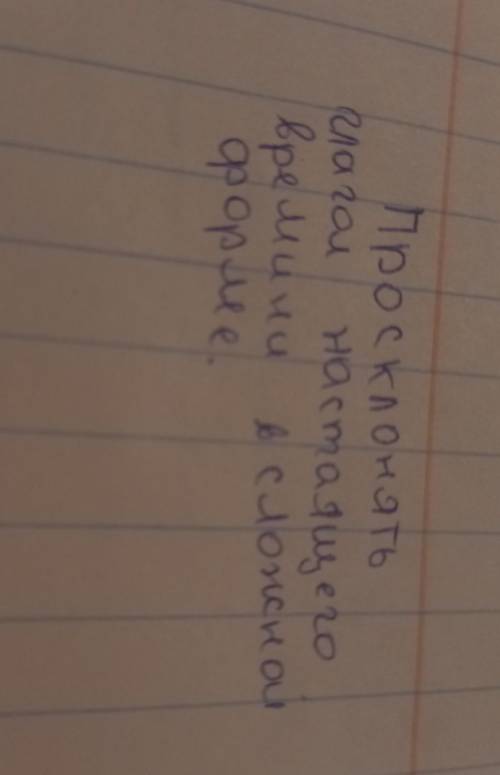 Просклонять
глагол настаящего
времини в сложной
форме.